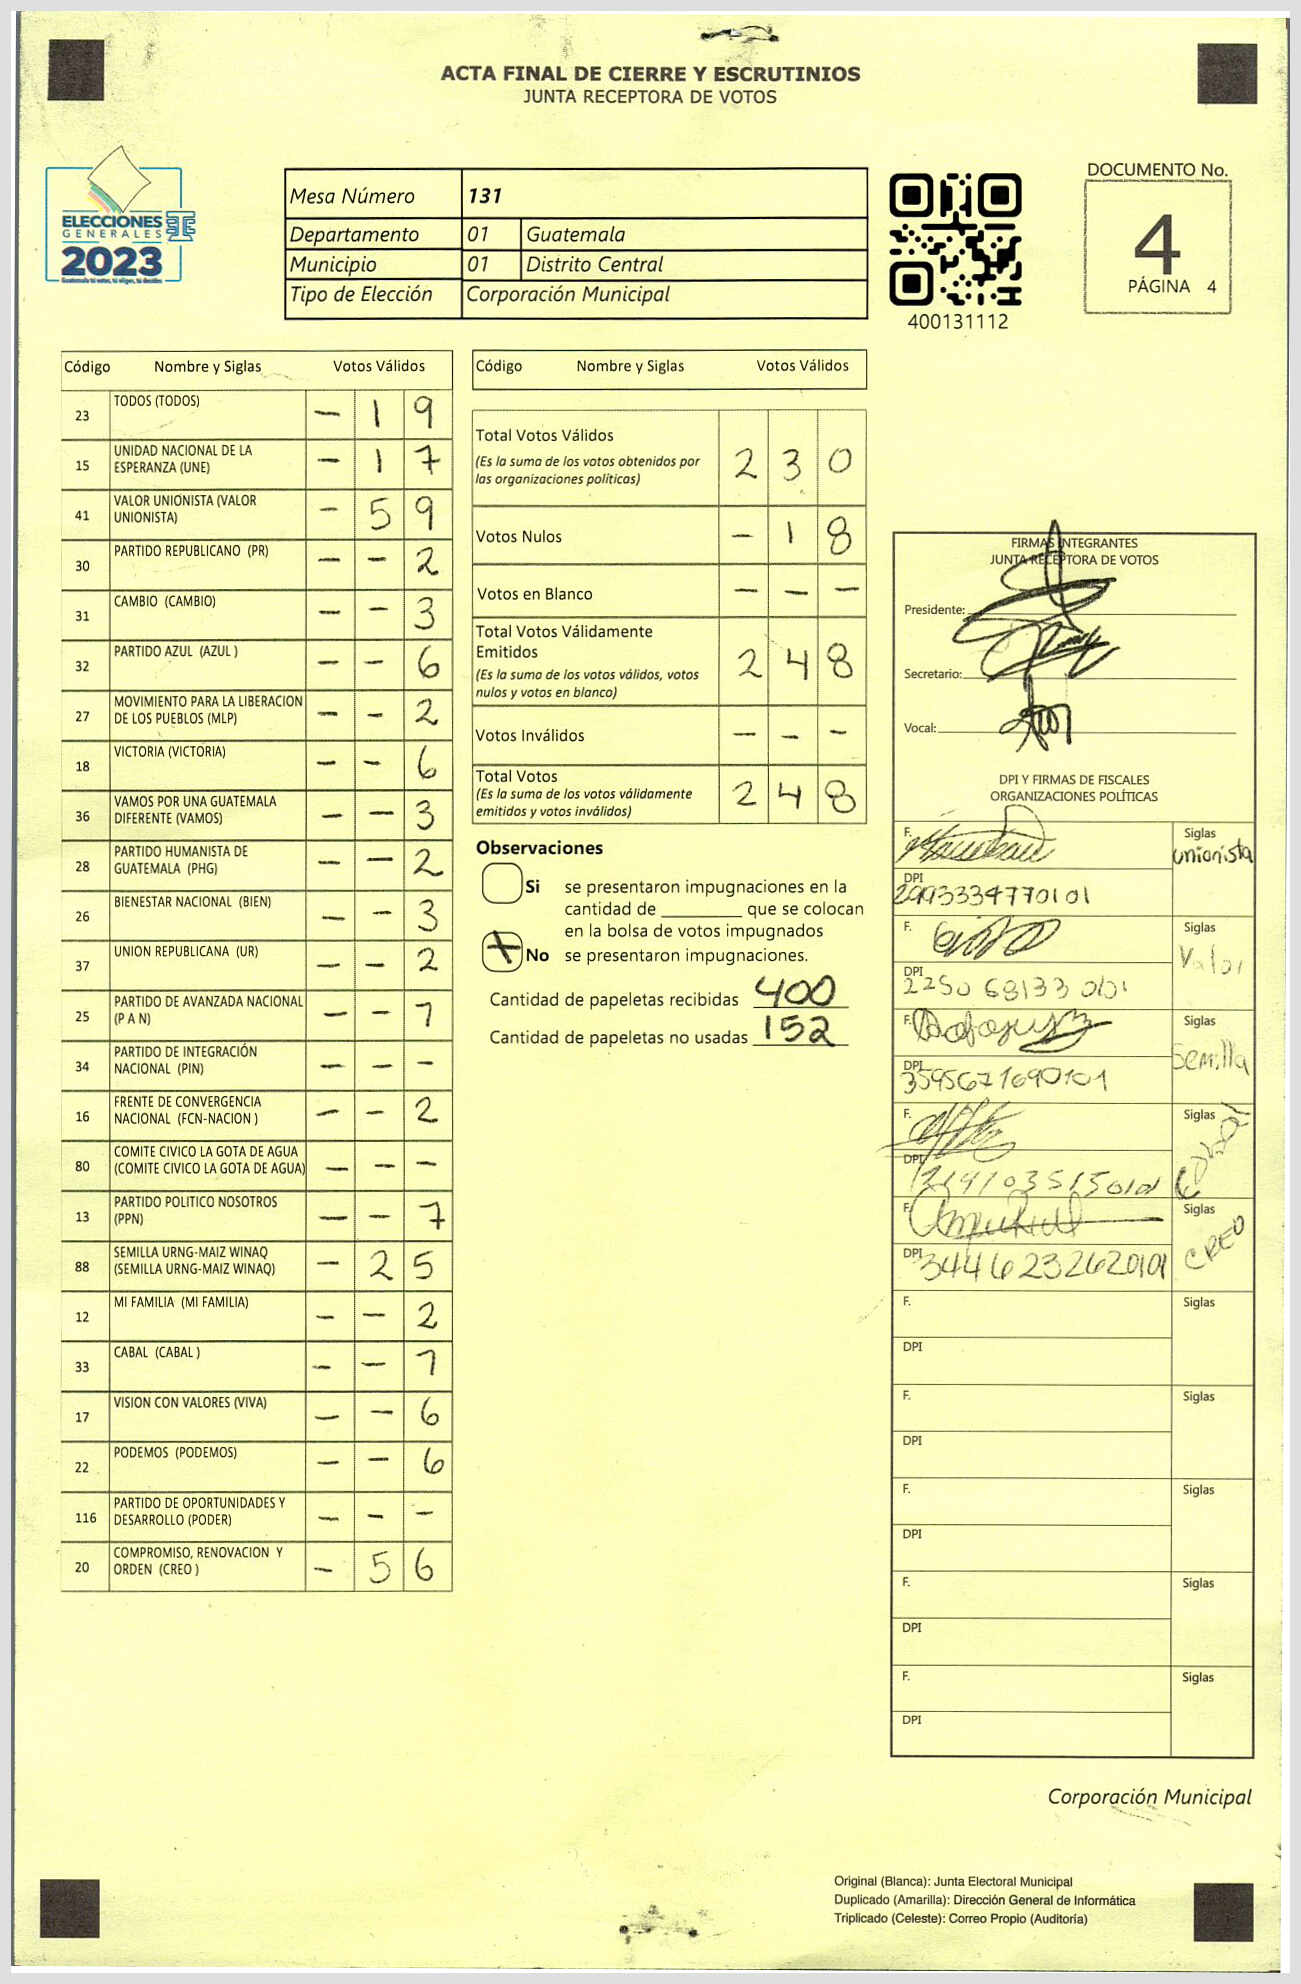 ACTA FINAL DE CIERRE Y ESCRUTINIOS
JUNTA RECEPTORA DE VOTOS
ELECCIONES
GENERALES
2023
Mesa Número 131
Departamento 01 Guatemala
Municipio 01 Distrito Central
Tipo de Elección Corporación Municipal
400131112
DOCUMENTO No.
4
PÁGINA 4
Código Nombre y Siglas Votos Válidos
23 TODOS (TODOS) – 1 9
15 UNIDAD NACIONAL DE LA ESPERANZA (UNE) – 1 7
41 VALOR UNIONISTA (VALOR UNIONISTA) – 5 9
30 PARTIDO REPUBLICANO (PR) – – 2
31 CAMBIO (CAMBIO) – – 3
32 PARTIDO AZUL (AZUL ) – – 6
27 MOVIMIENTO PARA LA LIBERACION DE LOS PUEBLOS (MLP) – – 2
18 VICTORIA (VICTORIA) – – 6
36 VAMOS POR UNA GUATEMALA DIFERENTE (VAMOS) – – 3
28 PARTIDO HUMANISTA DE GUATEMALA (PHG) – – 2
26 BIENESTAR NACIONAL (BIEN) – – 3
37 UNION REPUBLICANA (UR) – – 2
25 PARTIDO DE AVANZADA NACIONAL (P A N) – – 1
34 PARTIDO DE INTEGRACIÓN NACIONAL (PIN) – – –
16 FRENTE DE CONVERGENCIA NACIONAL (FCN-NACION ) – – 2
80 COMITE CIVICO LA GOTA DE AGUA (COMITE CIVICO LA GOTA DE AGUA) – – –
13 PARTIDO POLITICO NOSOTROS (PPN) – – 7
88 SEMILLA URNG-MAIZ WINAQ (SEMILLA URNG-MAIZ WINAQ) – 2 5
12 MI FAMILIA (MI FAMILIA) – – 2
33 CABAL (CABAL ) – – 1
17 VISION CON VALORES (VIVA) – – 6
22 PODEMOS (PODEMOS) – – 6
116 PARTIDO DE OPORTUNIDADES Y DESARROLLO (PODER) – – –
20 COMPROMISO, RENOVACION Y ORDEN (CREO ) – 5 6
Código Nombre y Siglas Votos Válidos
Total Votos Válidos 2 3 0
(Es la suma de los votos obtenidos por
las organizaciones políticas)
Votos Nulos – 1 8
Votos en Blanco – – –
Total Votos Válidamente
Emitidos 2 4 8
(Es la suma de los votos válidos, votos
nulos y votos en blanco)
Votos Inválidos – – –
Total Votos 2 4 8
(Es la suma de los votos válidamente
emitidos y votos inválidos)
Observaciones
Si se presentaron impugnaciones en la
cantidad de ________ que se colocan
en la bolsa de votos impugnados
X No se presentaron impugnaciones.
Cantidad de papeletas recibidas 400
Cantidad de papeletas no usadas 152
FIRMAS INTEGRANTES
JUNTA RECEPTORA DE VOTOS
Presidente:
Secretario:
Vocal:
DPI Y FIRMAS DE FISCALES
ORGANIZACIONES POLÍTICAS
F. Siglas
unionista
DPI
2993334770101
F. Siglas
Valor
DPI
F. Siglas
Semilla
DPI
3595671690101
F. Siglas
DPI
F. Siglas
CREO
DPI
3446232620101
F. Siglas
DPI
F. Siglas
DPI
F. Siglas
DPI
F. Siglas
DPI
F. Siglas
DPI
Corporación Municipal
Original (Blanca): Junta Electoral Municipal
Duplicado (Amarilla): Dirección General de Informática
Triplicado (Celeste): Correo Propio (Auditoría)